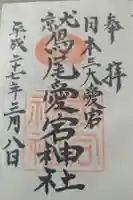 奉拝
日本三大愛宕
鷲尾愛宕神社
平成二十七年三月八日